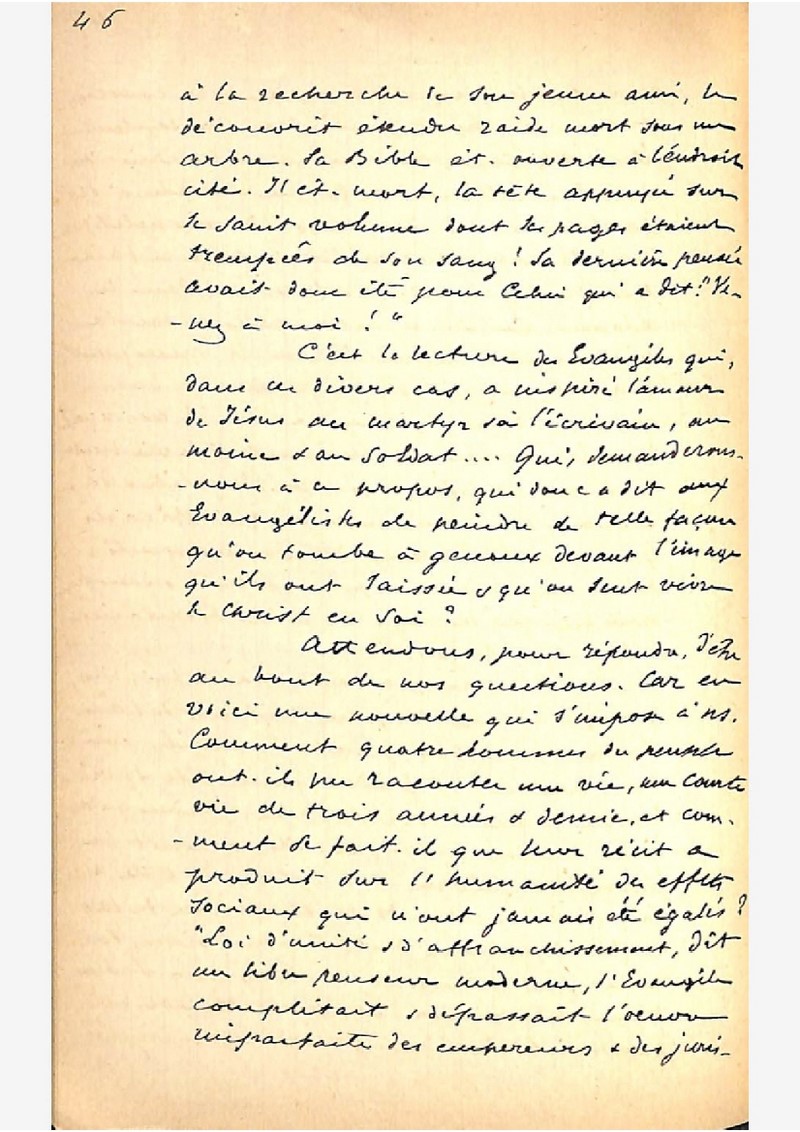 46
à la recherche de son jeune ami, le
découvrit étendu raide mort sous un
arbre. Sa Bible ét. ouverte à l'endroit
cité. Il ét. mort, la tête appuyée sur
le saint volume dont les pages étaient
trempées de son sang ! Sa dernière pensée
avait donc été pour Celui qui a dit : "Ve-
-nez à moi ! "
C'est la lecture des Evangiles qui,
dans ces divers cas, a inspiré l'amour
de Jésus au martyr, à l'écrivain, au
moine & au soldat.... Qui, demanderons-
-nous à ce propos, qui donc a dit aux
Evangélistes de peindre de telle façon
qu'on tombe à genoux devant l'image
qu'ils ont laissée & qu'on sent vivre
le Christ en soi ?
Attendons, pour répondre, d'être
au bout de nos questions. Car en
voici une nouvelle qui s'impose à ns.
Comment quatre hommes du peuple
ont-ils pu raconter une vie, une courte
vie de trois années & demie, et com-
-ment se fait-il que leur récit a
produit sur l'humanité des effets
sociaux qui n'ont jamais été égalés ?
"Loi d'unité & d'affranchissement, dit
un libre penseur moderne, l'Evangile
complétait & dépassait l'oeuvre
imparfaite des empereurs & des juris-